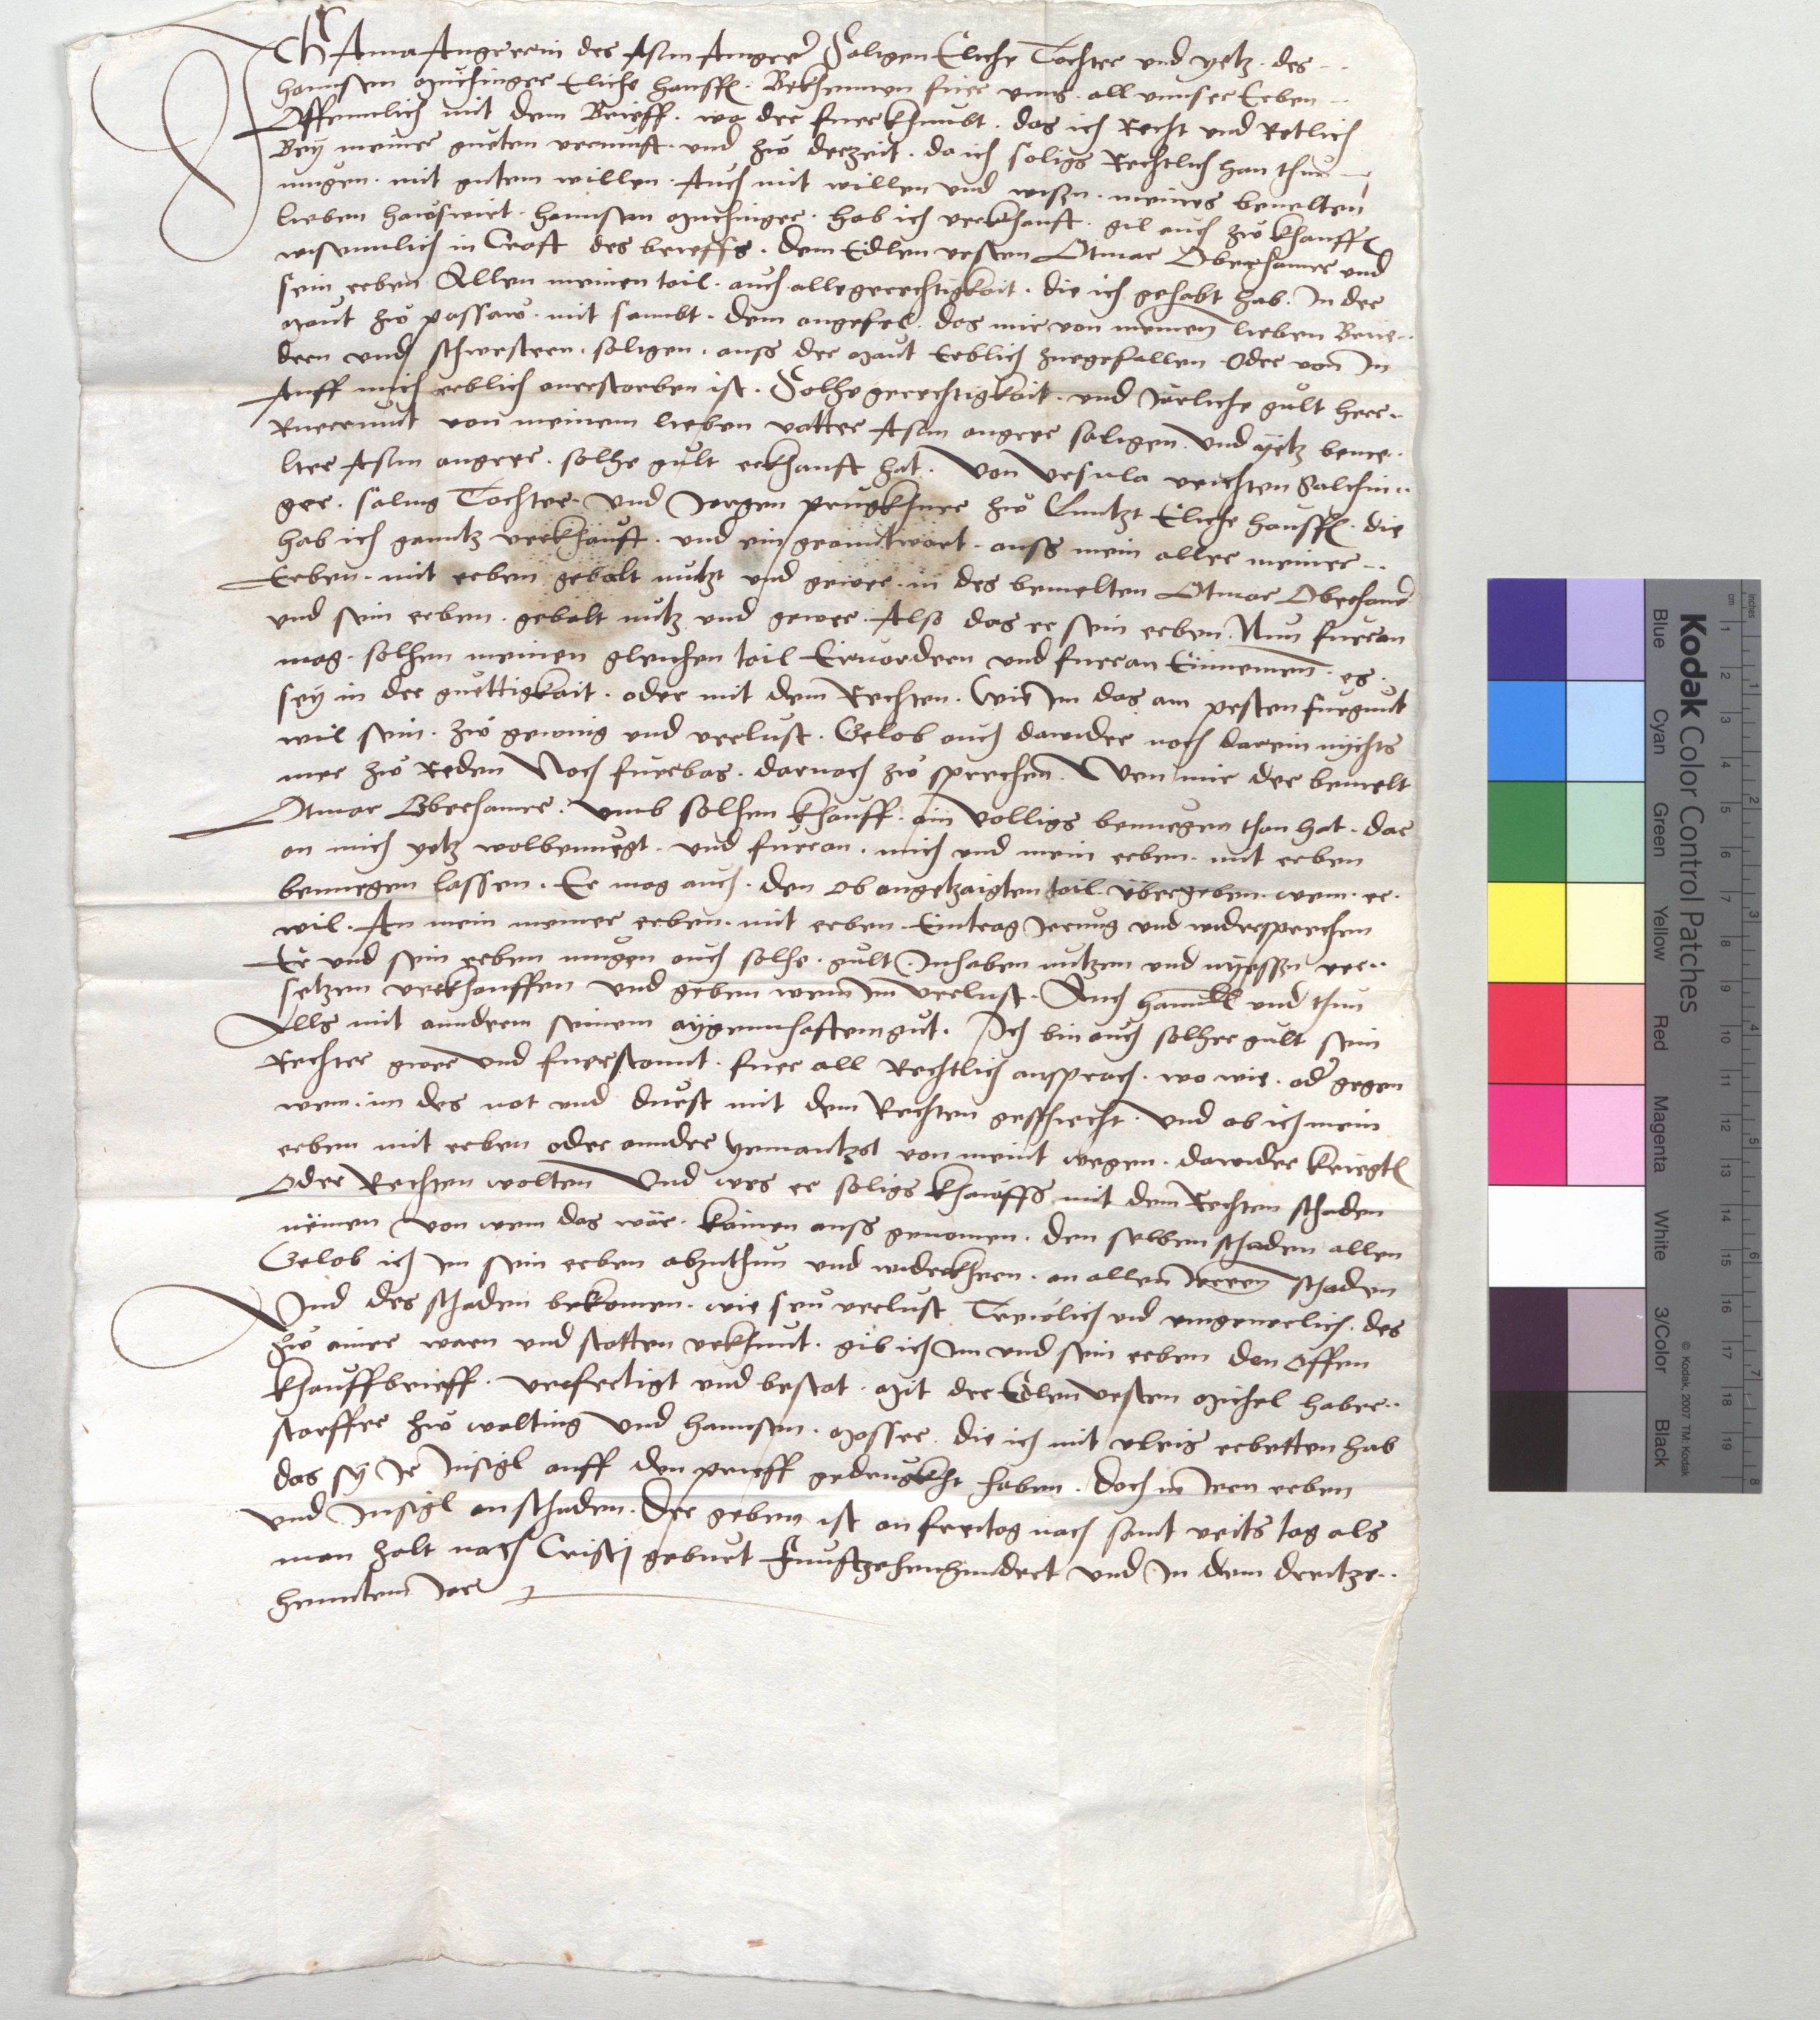 Ich Anna Angrerin des Asm Angrer Saligen Eliche Tochter und yetz des
hannsen Muchinger Eliche hausff. Bekhennen fuer unns all unnser Erben
Offennlich mit dem Brieff. wo der fuerkhumbt. das ich Recht und Retlich
Bey meiner gueten vernunft. und zw derzeit. da ich soligs Rechtlich han thun
mugen. mit gutem willen. Auch mit willen und wissn. meines bemelten
lieben hawswirt. hannsen Muchinger. hab ich verkhauft. gib auch zw khauffen
wisennlich in Craft des brieffs. dem Edlen vesten Otmar Oberhamer und
sein erben Allen meinen tail. auch alle gerechtigkait. die ich gehabt hab. In der
Maut zw passaw. mit sambt. dem angefel. das mir von meinen lieben Brue
dern und schwestern. saligen. auss der Maut Erblich zuegefallen Oder von In
Auff mich erblich anerstorben ist. Solhe gerechtigkait. und Järliche gült herr
Ruerunt von meinem lieben vatter Asm angrer saligen. Und yetz beme
lter Asm angrer. solhe gult erkhauft hat. Von Ursula veichten Salchin
ger. saling Tochter. und Jorgen prugkhner zw Lintzt Eliche hausff. die
hab ich ganntz verkhauft. und ein geanntwort. auss mein aller meiner
Erben. mit erben gebalt nutzt und gewer. in des bemelten Otmar Oberhamer
und sein erben. gebalt nutz und gewer. Also das er sein erben. Nun furran
mag. solhen meinen gleichen tail Ervordern und furran Einnemen. es
sey in der guettigkait. oder mit dem Rechten. Wie Im das am pesten fuegunt
wil sein. zw gewing und verlust. Gelob auch dawider noch darein nychts
mer zw Reden Noch furbas. darnach zw sprechen. Wen mir der bemelt
Otmar Oberhamer. umb solhen khauff. ain volligs benuegen than hat. dar
an mich yetz wolbenuegt. und furran. mich und mein erben. mit erben
benuegen lassen. Er mag auch. den ob angetzaigten tail. übergeben. wem er
wil. An mein meiner erben. mit erben. Eintrag Jerung und widersprechen
Er und sein erben mugen auch solhe. gult Inhaben nutzen und nyessn ver
setzen verkhauffen und geben wem Im verlust. Auch hanndl und thun
Alls mit anndern seinem aygennhaften gut. Ich bin auch solher gult sein
Rechter gwer und fuerstannt. fuer all Rechtlich ansprach. wo wie. oder gegen
wem. im des not und durft mit dem Rechten geschiecht. und ob ich mein
erben mit erben oder annder yemantzst von meint wegen. dawider kriegten
Oder Rechten wolten Und wes er soligs khauffs mit dem Rechten schaden
nëmen von wem das wär. kainen auss genomen. den selben schaden allen
Gelob ich im sein erben abzuthun und widerkhern. an allen Irren schaden
Und des schaden bekomen. wie seu verlust Trewlich und ungeverlich. des
zw ainer warn und statten urkhunt. gib ich Im und sein erben den Offen
khauffbrieff. verfertigt und bestat. Mit der Edlen vesten Michel haber
storffer zw walting und hannsen. Mosser. die ich mit vleis erbetten hab
das sy Ir Insigl auff den prieff gedrugkht haben. doch in Iren erben
und Insigl an schaden. Der geben ist an freitag nach sannt veits tag als
man zalt nach Cristy geburt Funftzehenhundert und In dem dreitze
henntem Jar
Kodak Color Control Patches
Blue Cyan Green Yellow Red Magenta White 3/Color Black
© Kodak, 2007 TM: Kodak
inches 1 2 3 4 5 6 7 8
cm 1 2 3 4 5 6 7 8 9 10 11 12 13 14 15 16 17 18 19